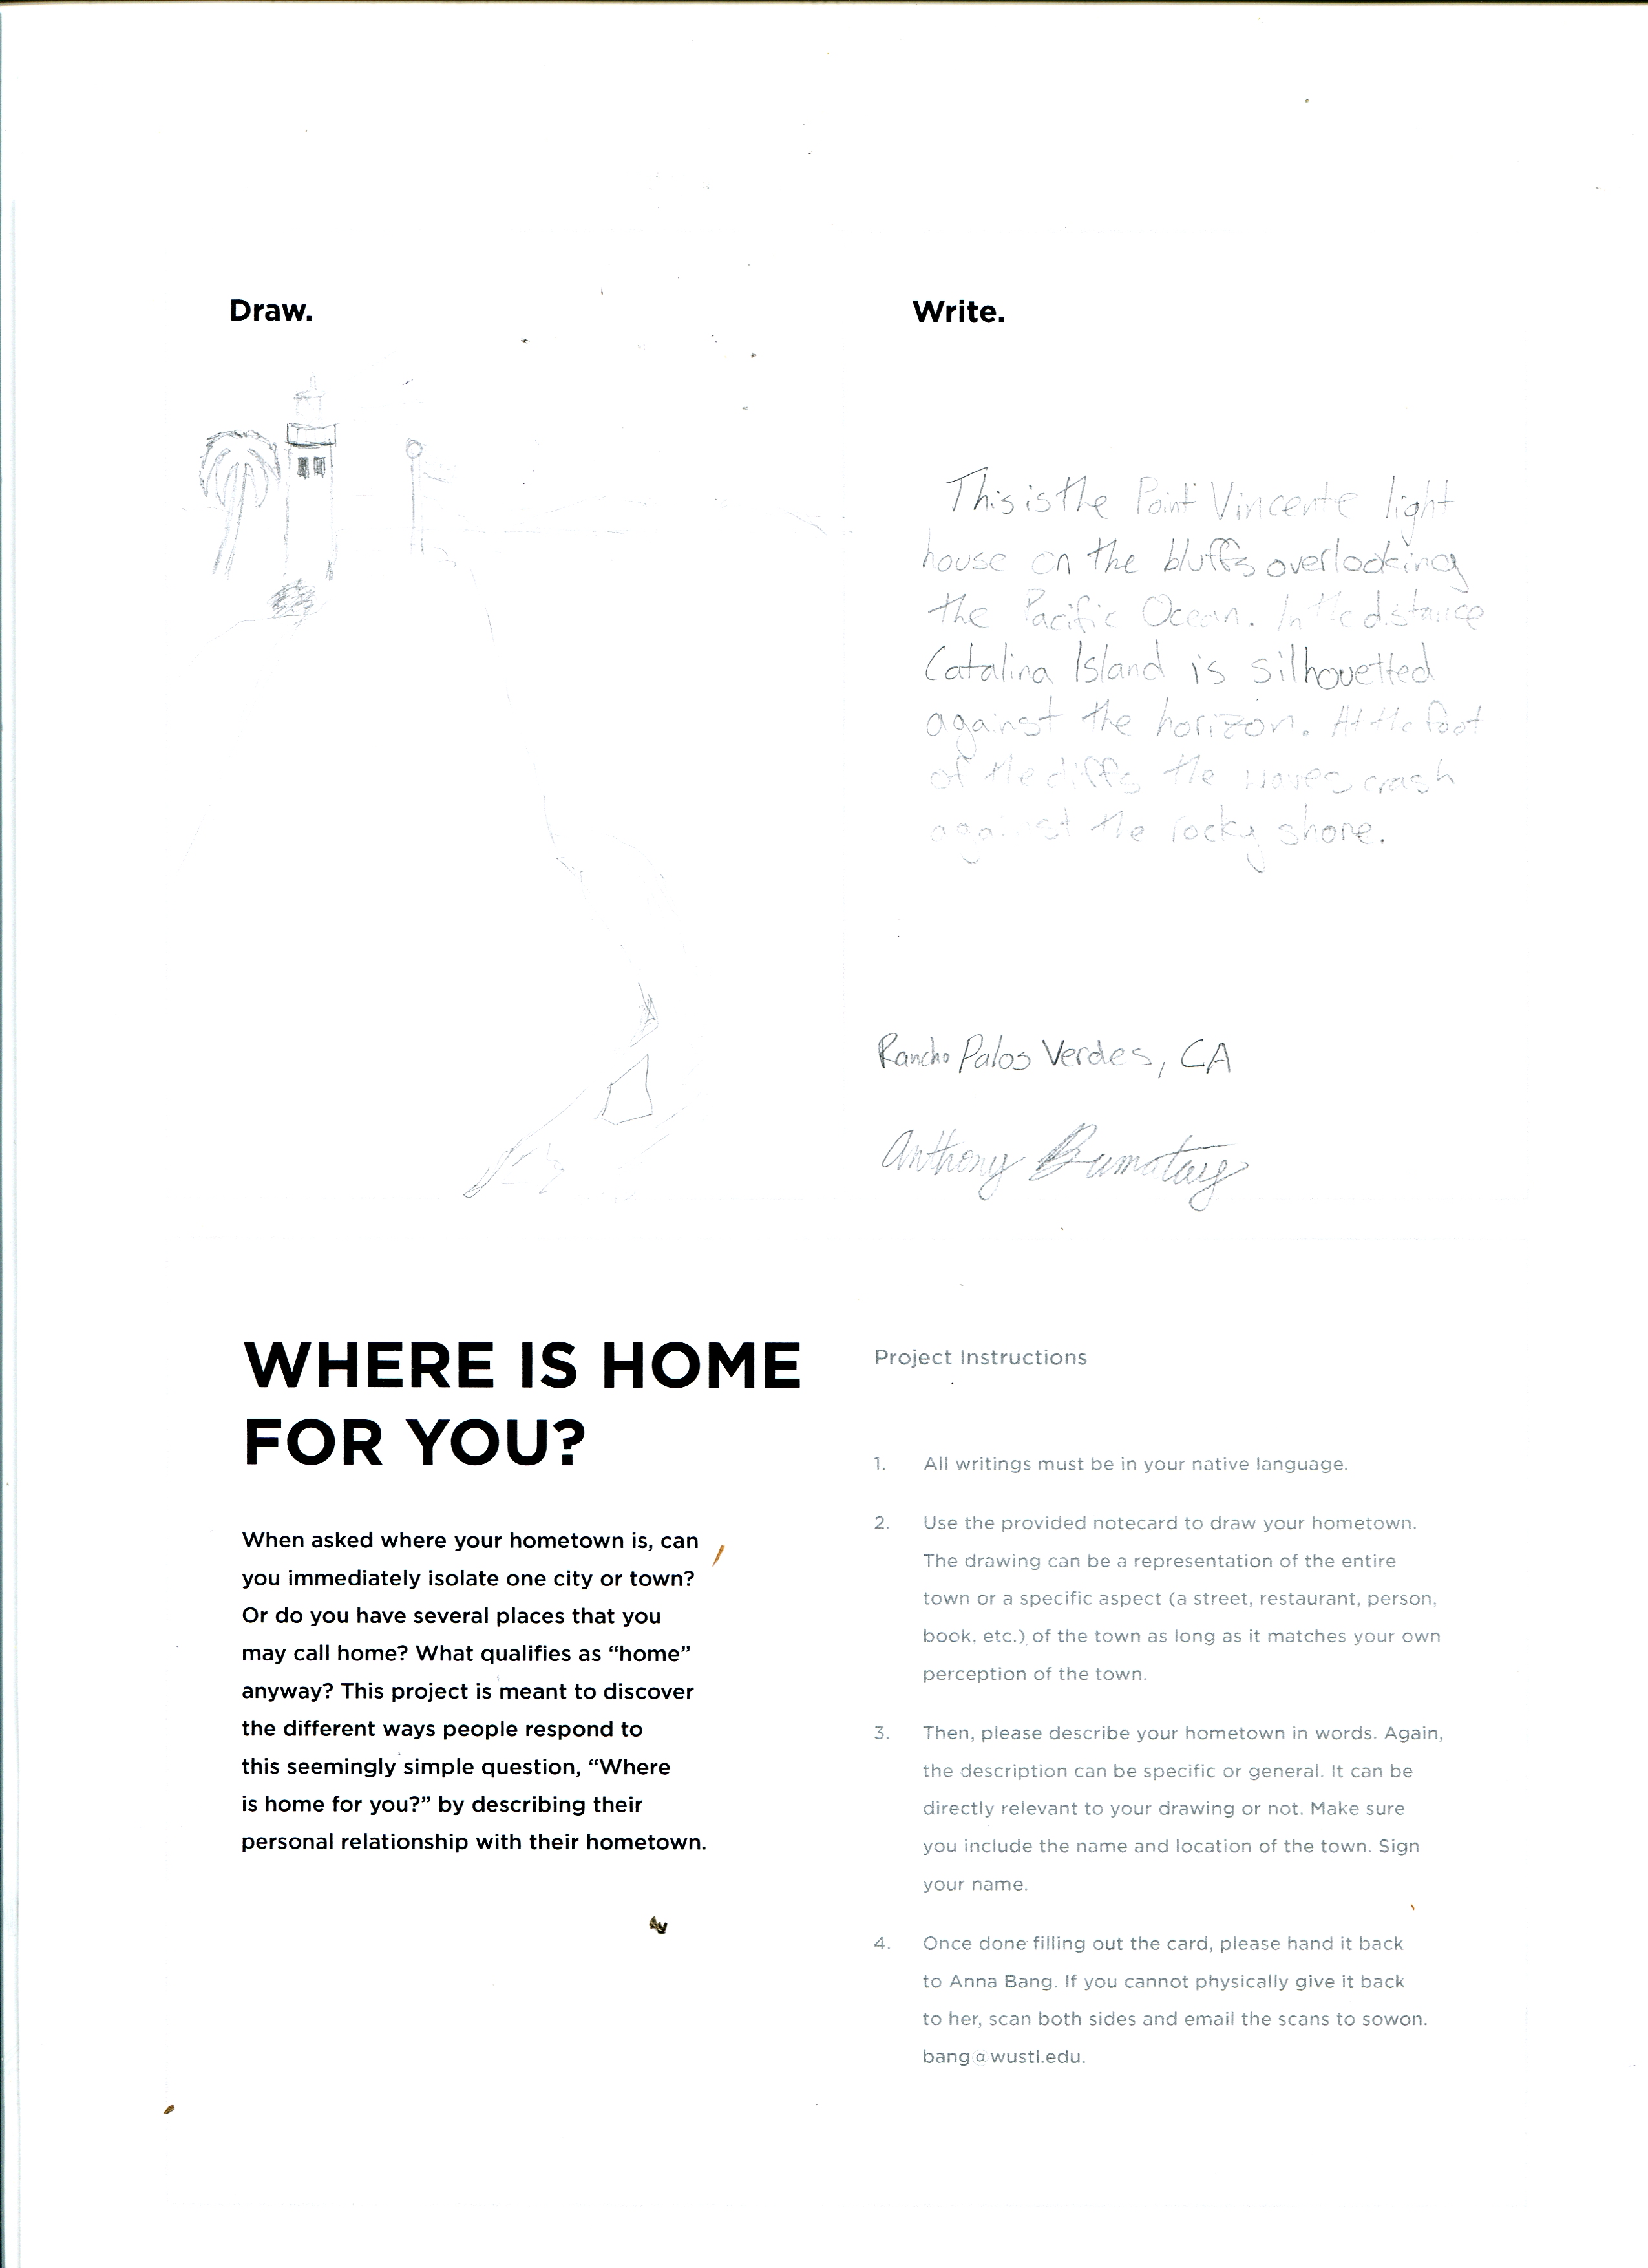 Draw.
Write.
This is the Point Vincente light
house on the bluffs overlooking
the Pacific Ocean. In the distance
Catalina Island is silhouetted
against the horizon. At the foot
of the cliffs the waves crash
against the rocky shore.
Rancho Palos Verdes, CA
Anthony Bumatay
WHERE IS HOME
FOR YOU?
When asked where your hometown is, can
you immediately isolate one city or town?
Or do you have several places that you
may call home? What qualifies as “home”
anyway? This project is meant to discover
the different ways people respond to
this seemingly simple question, “Where
is home for you?” by describing their
personal relationship with their hometown.
Project Instructions
1. All writings must be in your native language.
2. Use the provided notecard to draw your hometown.
The drawing can be a representation of the entire
town or a specific aspect (a street, restaurant, person,
book, etc.) of the town as long as it matches your own
perception of the town.
3. Then, please describe your hometown in words. Again,
the description can be specific or general. It can be
directly relevant to your drawing or not. Make sure
you include the name and location of the town. Sign
your name.
4. Once done filling out the card, please hand it back
to Anna Bang. If you cannot physically give it back
to her, scan both sides and email the scans to sowon.
bang@wustl.edu.